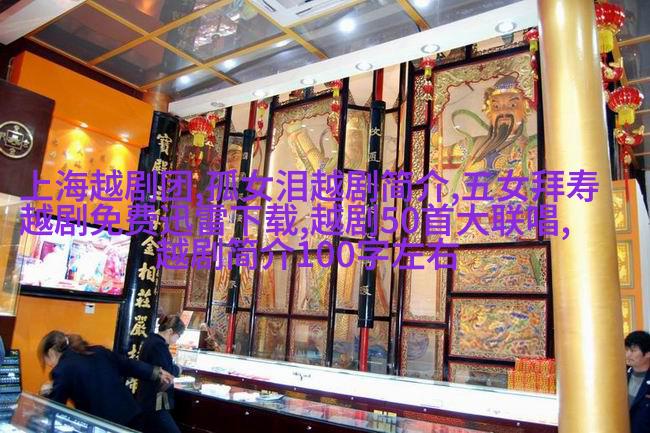 上海越剧团,孤女泪越剧简介,五女拜寿
越剧免费迅雷下载,越剧50首大联唱,
越剧简介100字左右
金相莊嚴